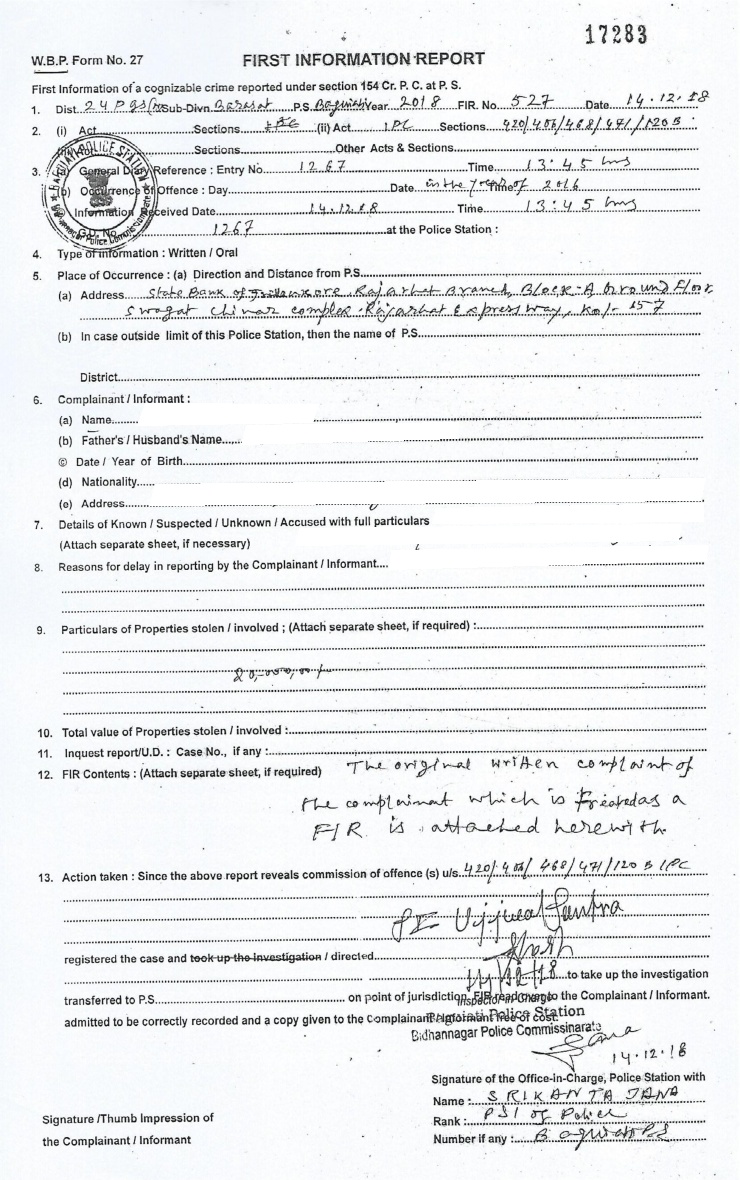 17283
W.B.P. Form No. 27
FIRST INFORMATION REPORT
First Information of a cognizable crime reported under section 154 Cr. P. C. at P. S.
1. Dist. 24 Pgs(N) Sub-Divn. Barasat P.S. Baguiati Year 2018 FIR. No. 527 Date 14.12.18
2. (i) Act Sections IPC (ii) Act IPC Sections 420/406/468/471/120B
Sections Other Acts & Sections
3. (a) General Diary Reference : Entry No. 1267 Time 13:45 hrs
(b) Occurrence of Offence : Day Date in the year of 2016
Information Received Date 14.12.18 Time 13:45 hrs
G.D. No. 1267 at the Police Station :
4. Type of information : Written / Oral
5. Place of Occurrence : (a) Direction and Distance from P.S.
(a) Address State Bank of Rajarhat Branch, Block-A Ground Floor
Swagat Chinar complex Rajarhat Expressway, Kol- 157
(b) In case outside limit of this Police Station, then the name of P.S.
District
6. Complainant / Informant :
(a) Name
(b) Father's / Husband's Name
© Date / Year of Birth
(d) Nationality
(e) Address
7. Details of Known / Suspected / Unknown / Accused with full particulars
(Attach separate sheet, if necessary)
8. Reasons for delay in reporting by the Complainant / Informant....
9. Particulars of Properties stolen / involved ; (Attach separate sheet, if required) :
10. Total value of Properties stolen / involved :
11. Inquest report/U.D. : Case No., if any :
12. FIR Contents : (Attach separate sheet, if required) The original written complaint of
the complainat which is Treated as a
FIR is attached herewith.
13. Action taken : Since the above report reveals commission of offence (s) u/s. 420/406/468/471/120B IPC
registered the case and took up the Investigation / directed
14/12/18 to take up the investigation
transferred to P.S. on point of jurisdiction, FIR read over to the Complainant / Informant.
Inspector-in-Charge
admitted to be correctly recorded and a copy given to the Complainant / Informant free of cost.
Baguiati Police Station
Bidhannagar Police Commissinarate
14.12.18
Signature of the Office-in-Charge, Police Station with
Name : SRIKANTA JANA
Rank : PSI of Police
Number if any : Baguiati PS
Signature /Thumb Impression of
the Complainant / Informant